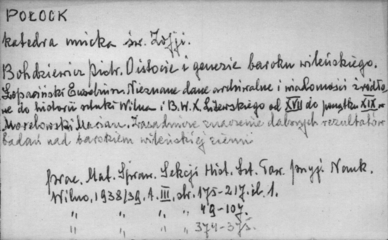 POŁOCK
katedra unicka św. Zofji.
Bohdziewicz Piotr. O istocie i genezie baroku wileńskiego.
Łopaciński Euzebiusz. Nieznane dane archiwalne i wiadomości źródło
we do historii sztuki Wilna i B.W.X. Litewskiego od XVII do początku XIX w.
Morelowski Marian. Zasadnicze znaczenie dalszych rezultatów
badań nad barokiem wileńskiej ziemi
Prace. Mat. Spraw. Sekcji Hist. Szt. Tow. Przyj. Nauk.
Wilno, 1938/39, t. III, str. 175-217. il. 1.
" " " " 49-107.
" " " " 374-375.